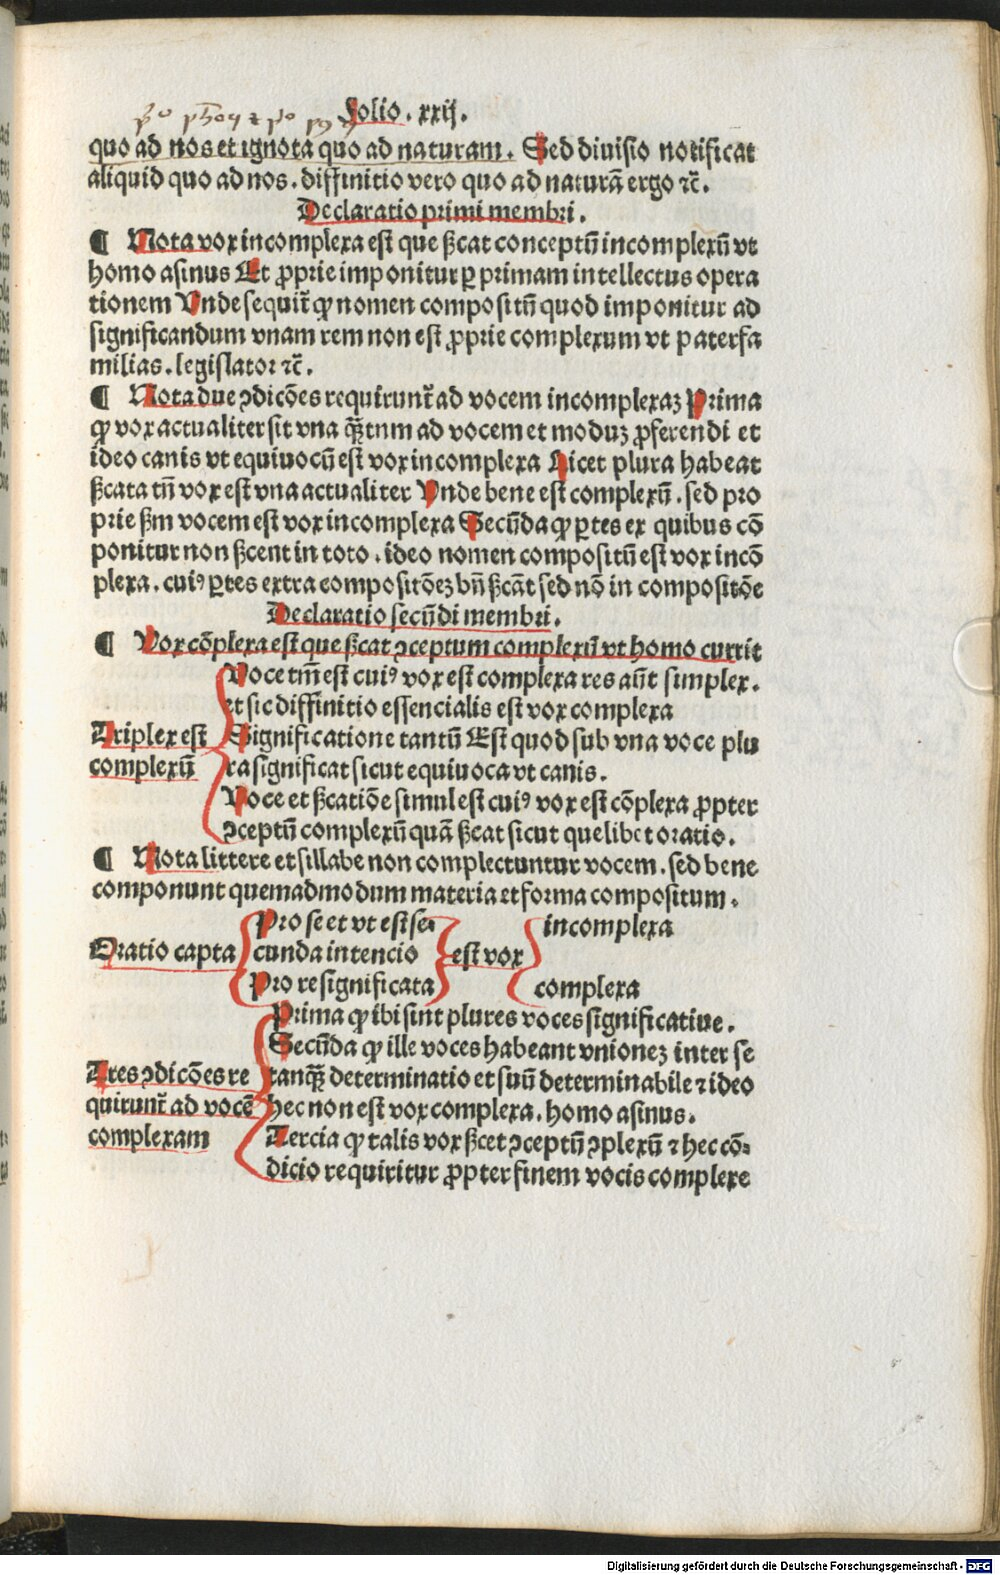 Folio. xxij.
quo ad nos et ignota quo ad naturam. Sed diuisio notificat
aliquid quo ad nos. diffinitio vero quo ad naturã ergo ⁊c̃.
Declaratio primi membri.
¶ Nota vox incomplexa est que ßcat conceptũ incomplexũ vt
homo asinus Et ꝓprie imponitur ꝑ primam intellectus opera
tionem Vnde sequit̃ ꝙ nomen compositũ quod imponitur ad
significandum vnam rem non est ꝓprie complexum vt paterfa
milias. legislator ⁊c̃.
¶ Nota due ꝯdicões requirunt̃ ad vocem incomplexaꝫ Prima
ꝙ vox actualiter sit vna q̃tnm ad vocem et moduꝫ ꝓferendi et
ideo canis vt equiuocũ est vox incomplexa Licet plura habeat
ßcata tñ vox est vna actualiter Vnde bene est complexũ. sed pro
prie ßm vocem est vox incomplexa Secũda ꝙ ꝑtes ex quibus cõ
ponitur non ßcent in toto. ideo nomen compositũ est vox incõ
plexa. cuiꝰ ꝑtes extra compositõeꝫ bñ ßcãt sed nõ in compositõe
Declaratio secũdi membri.
¶ Vox cõplexa est que ßcat ꝯceptum complexũ vt homo currit
Triplex est
complexũ
Voce tm̃ est cuiꝰ vox est complexa res aũt simplex.
et sic diffinitio essencialis est vox complexa
Significatione tantũ Est quod sub vna voce plu
ra significat sicut equiuoca vt canis.
Voce et ßcatiõe simul est cuiꝰ vox est cõplexa ꝓpter
ꝯceptũ complexũ quã ßcat sicut quelibet oratio.
¶ Nota littere et sillabe non complectuntur vocem. sed bene
componunt quemadmodum materia et forma compositum.
Oratio capta
Pro se et vt est se-
cunda intencio
Pro re significata
est vox
incomplexa
complexa
Tres ꝯdicões re
quirunt̃ ad vocẽ
complexam
Prima ꝙ ibi sint plures voces significatiue.
Secũda ꝙ ille voces habeant vnioneꝫ inter se
tanq̃ determinatio et suũ determinabile ⁊ ideo
hec non est vox complexa. homo asinus.
Tercia ꝙ talis vox ßcet ꝯceptũ ꝯplexũ ⁊ hec cõ-
dicio requiritur ꝓpter finem vocis complexe
Digitalisierung gefördert durch die Deutsche Forschungsgemeinschaft - DFG